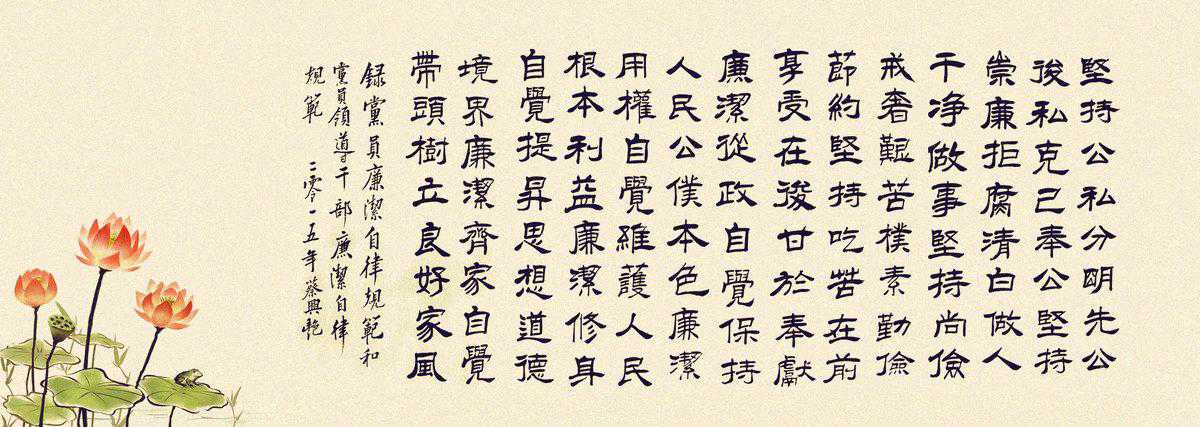 堅持公私分明先公
後私克己奉公堅持
崇廉拒腐清白做人
干净做事堅持尚儉
戒奢艱苦樸素勤儉
節約堅持吃苦在前
享受在後甘於奉獻
廉潔從政自覺保持
人民公僕本色廉潔
用權自覺維護人民
根本利益廉潔修身
自覺提昇思想道德
境界廉潔齊家自覺
帶頭樹立良好家風
録黨員廉潔自律規範和
黨員領導干部廉潔自律
規範 二零一五年蔡興艷